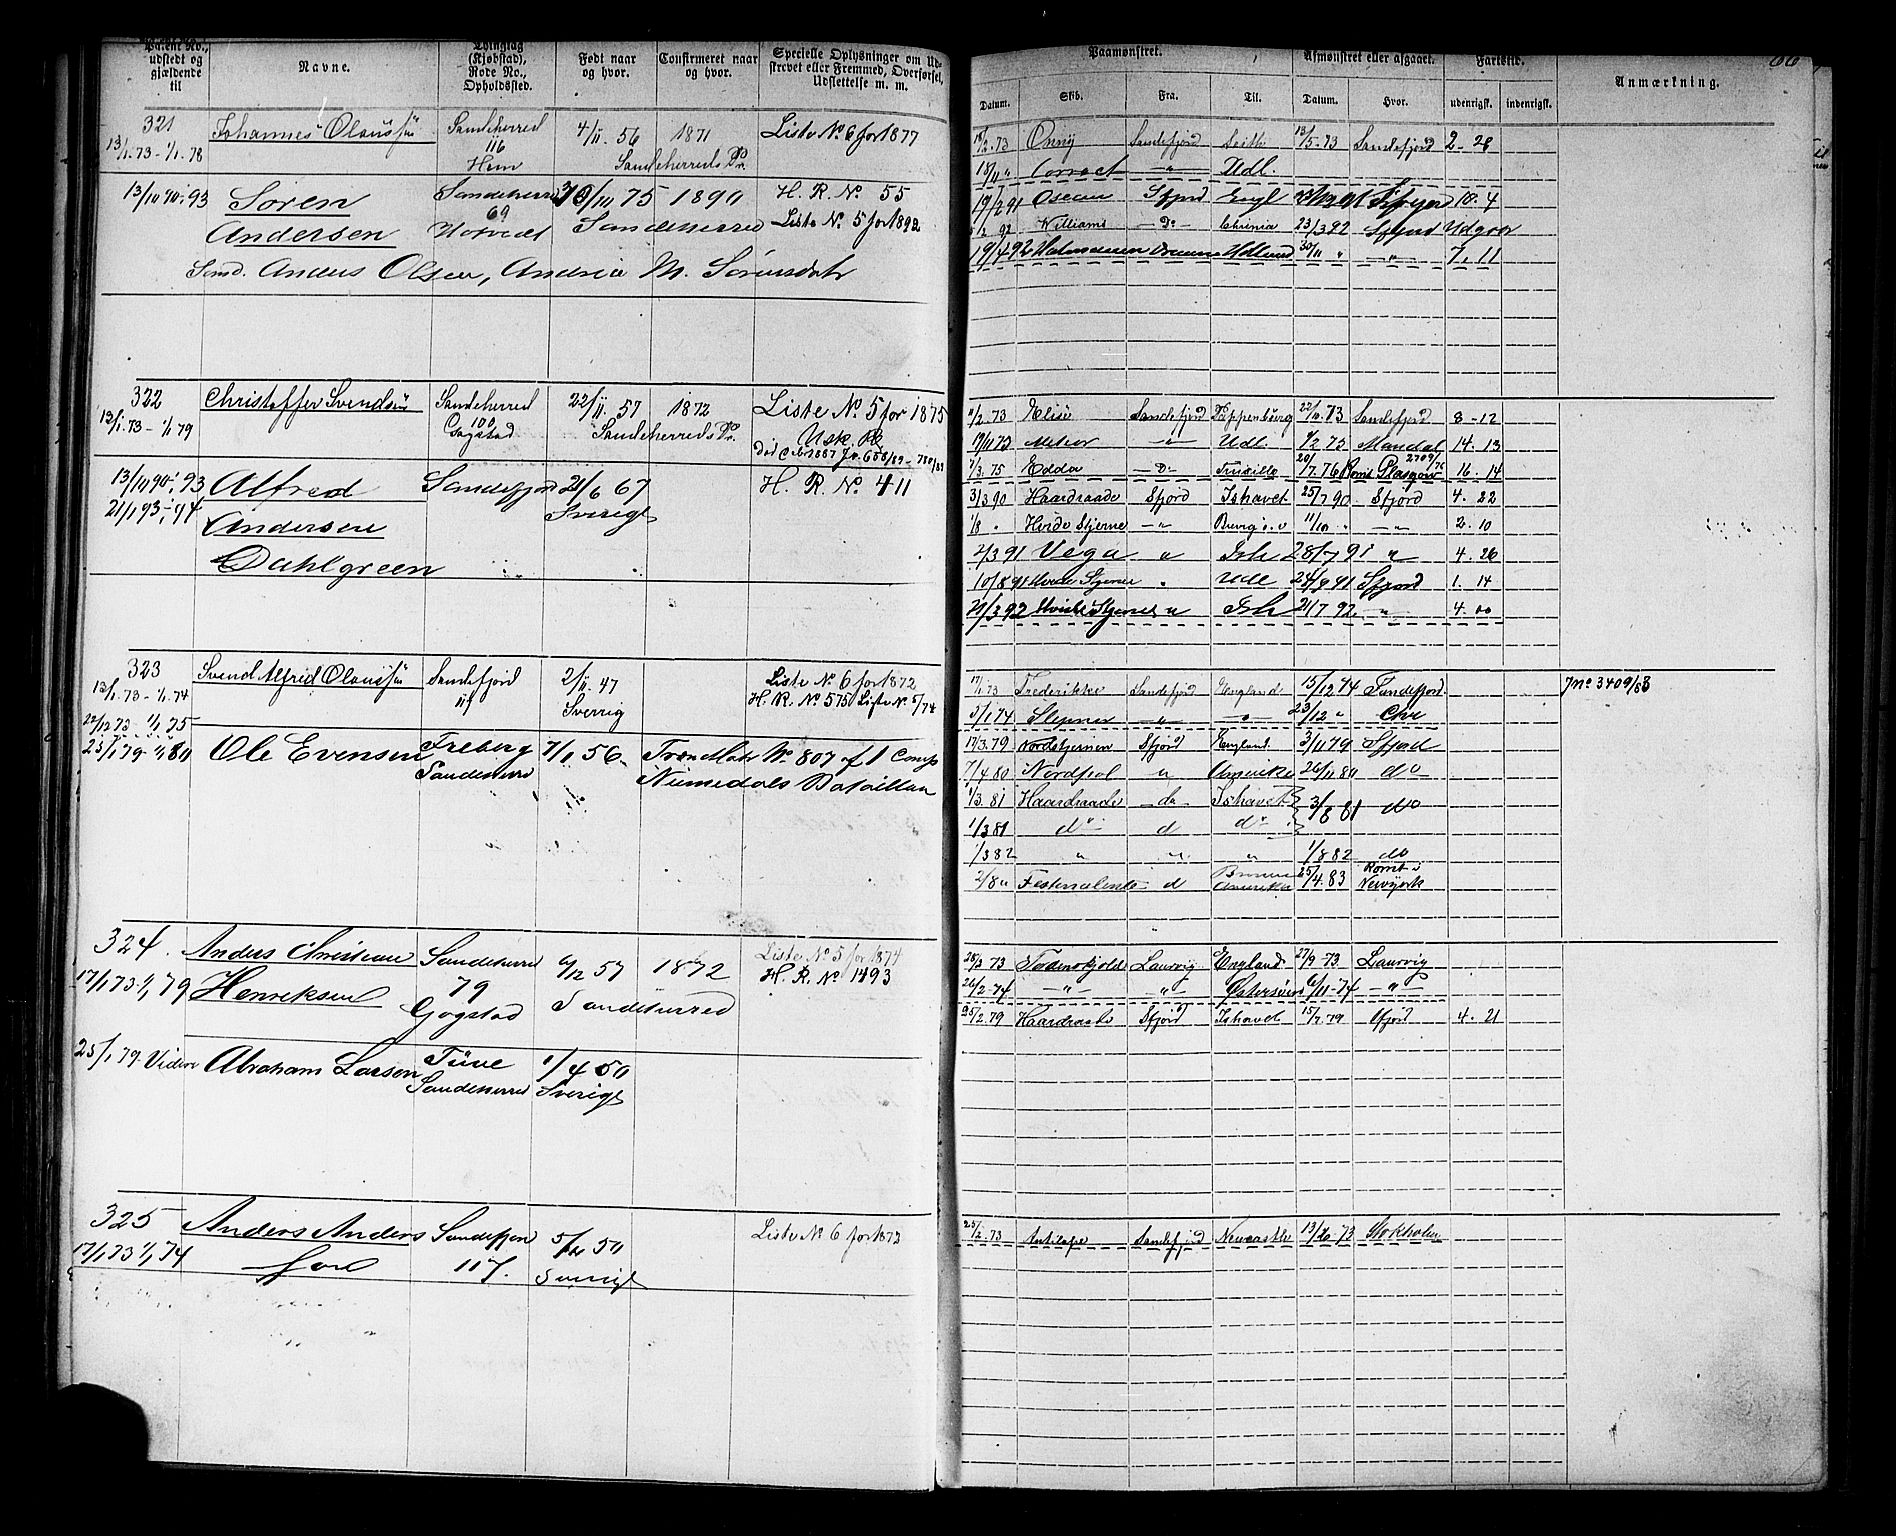 Patent No., udstedt og gjældende til
Navne.
Thinglag (Kjøbstad), Rode No., Opholdssted.
Født naar og hvor.
Confirmeret naar og hvor.
Specielle Oplysninger om Udskrevet eller Fremmed, Overførsel, Udslettelse m. m.
321 Johannes Olaussøn Sandeherred 4/11. 56 1871 Liste No 6 for 1877
13/1. 73 - 1/1. 78 116 Hem Sandeherreds Pr.
13/10 90 - 93 Søren Sandeherred 30/11 75 1890 H. R. No. 55
Andersen 69 Sandeherred Liste No. 5 for 1892
Anders Olsen, Andrea M. Sørensdatr
322 Christoffer Svendsøn Sandeherred 22/11. 57 1872 Liste No. 5 for 1875
13/1. 73 - 1/1 79 100 Gogstad Sandeherreds Pr.
13/10 90 - 93 Alfred Sandefjord 21/6 67 H. R. No. 411
21/1 93 - 94 Andersen Sverige
Dahlgreen
323 Svend Alfred Olaussøn Sandefjord 2/11. 47 Liste No. 6 for 1872
13/1. 73 - 1/1. 74 Sverrig H. R. No 575
22/12 73 - 1/1 75
23/1 79 - 1/1 80 Ole Evensen Freberg 7/1 56 No. 807 af 1 Comp
Sandeherred Numedals Bataillon
324. Anders Christian Sandeherred 6/12 57 1872 Liste No 5 for 1874
17/1 73 1/1 79 Henriksen 79 Gogstad Sandeherred H. R. No 1493
25/1 79 Videre Abraham Larsen Tüve 1/4 50
Sandeherred Sverige
325 Anders Anders Sandefjord 5/12 50 Liste No 6 for 1873
17/1 73 1/1 74 søn 117. Sverige
Paamønstret.
Afmønstret eller afgaaet.
Fartstid.
Anmærkning.
Datum. Skib. Fra. Til. Datum. Hvor. udenrigsk. indenrigsk.
Sandefjord Leith 13/5-73 Sandefjord 2-28
Udl.
19/2 91 Sfjord Engl 10. 4
5/2 92 Williams Do 23/3 92 Sfjord Udgaar
19/4 92 Udland 30/11 7. 11
2/2. 73 Elise Sandefjord Pappenburg 22/10. 73 Sandefjord 8-12
19/11 73 Meteor Udl. 9/2 75 Mandal 14. 13
1/3. 75 Edda Do 20/7. 76 Rømt Glasgow 16. 14
3/3 90 Haardraade Sfjord Ishavet 25/7 90 Sfjord 4. 22
1/8 Hvide Stjerne 11/10 2. 10
2/3 91 Vega Ish 28/7 91 4. 26
10/8 91 Hvide Stjerne Udl 24/9 91 Sfjord 1. 14
21/3 92 Hvide Stjerne Ish 21/7 92 4. 00
17/1 73 Frederikke Sandefjord England 15/12 74 Sandefjord Jno 3409/88
5/1 74 Slepner 23/12
17/3. 79 Nordstjernen Sfjord England 3/11 79 Sfjord
7/4 80 Nordpol Amerika 26/11 80 do
1/3. 81 Haardraade do Ishavet 3/8 81 do
1/3 81 do d do
1/3 82 1/8 82 do
2/8 d Amerika 25/4. 83 Rømt i Newyork
28/3 73 Tordenskjold Laurvig England 27/9. 73. Laurvig
26/2-74 Østersøen 6/11-74
25/2. 79 Haardraade Sfjord Ishavet 15/7. 79 Sfjord 4. 21
25/2. 73 Antilope Sandefjord Newcastle 13/10 73 Stokholm